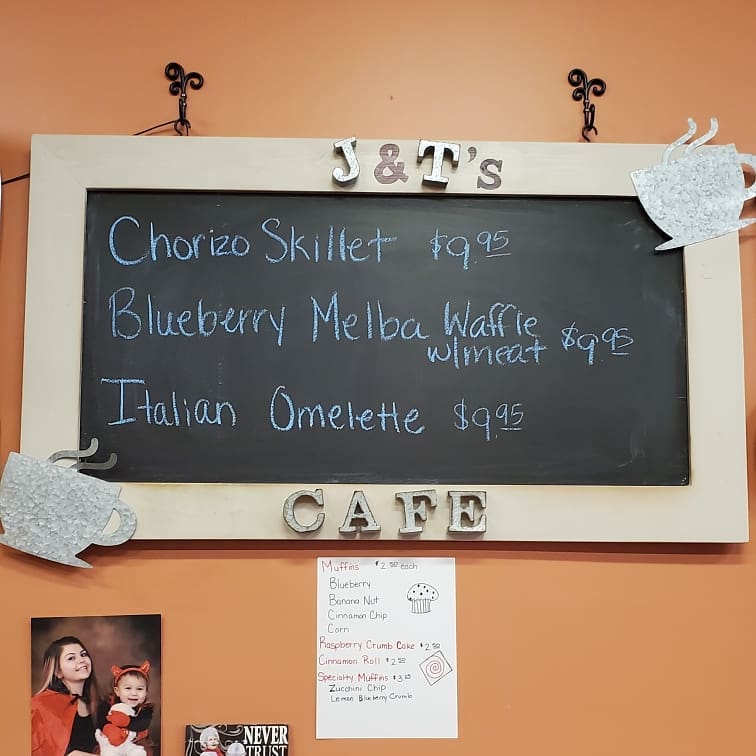 J&T's
Chorizo Skillet $9.95
Blueberry Melba Waffle
w/meat $9.95
Italian Omelette $9.95
CAFE
Muffins each
Blueberry
Banana Nut
Cinnamon Chip
Corn
Raspberry Crumb Cake
Cinnamon Roll
Specialty Muffins
Zucchini Chip
Lemon Blueberry Crumb
NEVER
TRUST